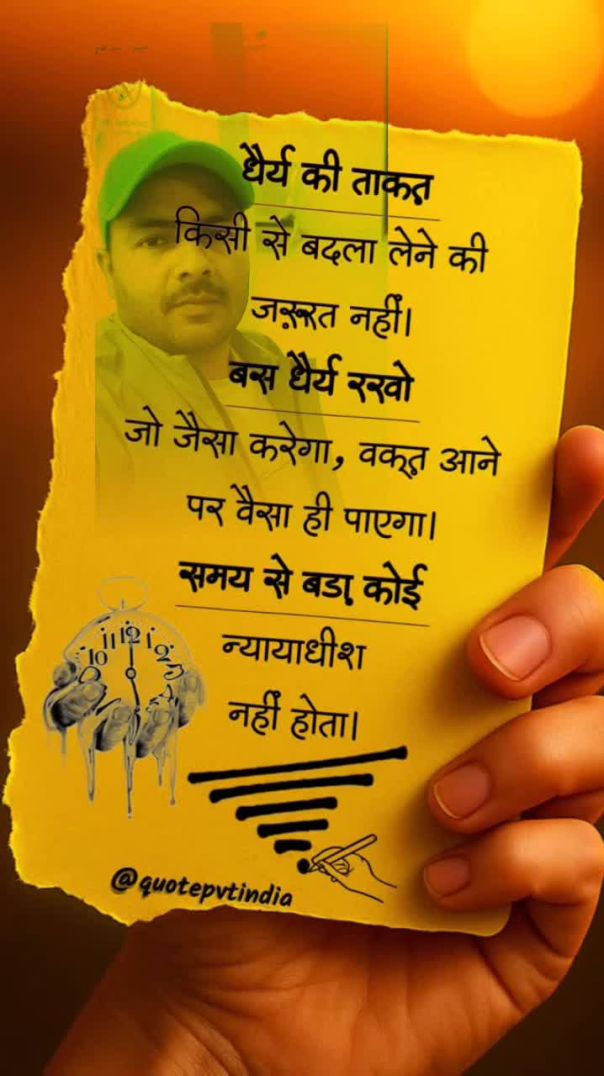 धैर्य की ताकत
किसी से बदला लेने की
जरूरत नहीं।
बस धैर्य रखो
जो जैसा करेगा, वक्त आने
पर वैसा ही पाएगा।
समय से बडा़ कोई
न्यायाधीश
नहीं होता।
10 11 12 1 2 3
@quotepvtindia